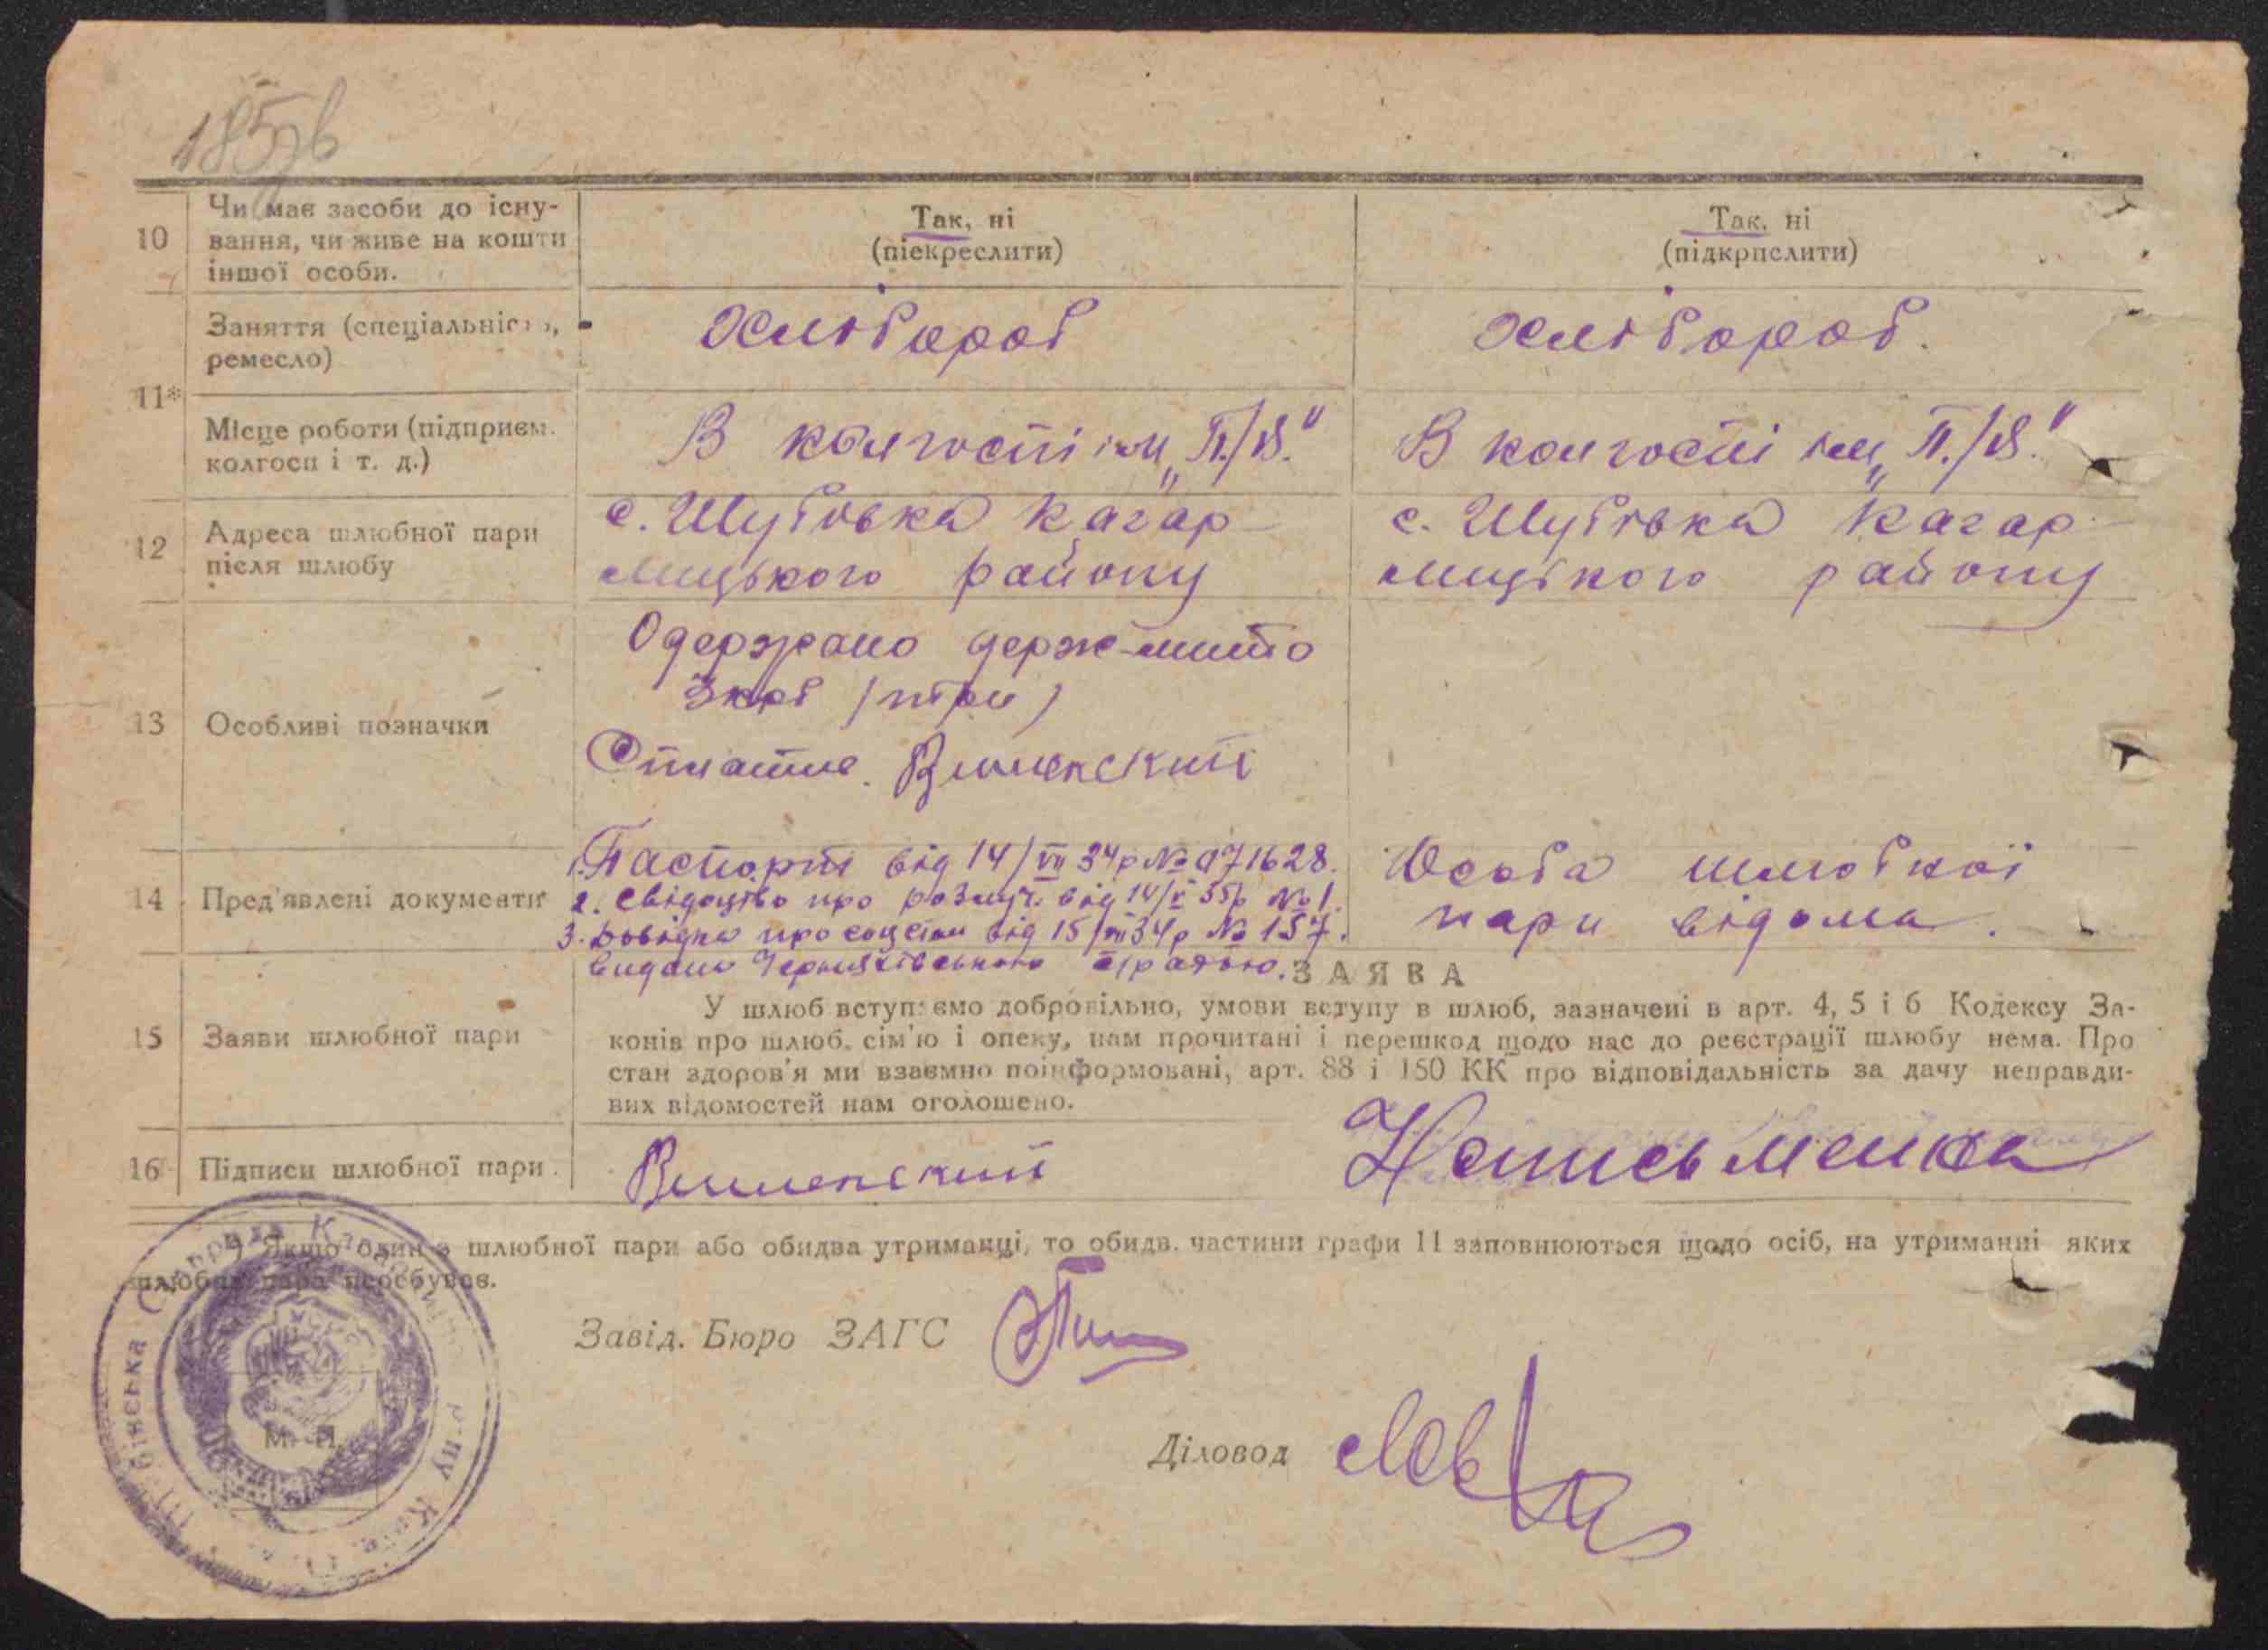 10 Чи має засоби до існу-
вання, чи живе на кошти
іншої особи.
Так, ні
(піекреслити)
Так, ні
(підкрпслити)
11*
Заняття (спеціальність,
ремесло)
Хлібороб
Хлібороб.
Місце роботи (підприєм.
колгосп і т. д.)
В колгоспі ім. „П./В."
В колгоспі ім. „П./В."
12 Адреса шлюбної пари
після шлюбу
с. Шубовка Кагар-
лицького району
с. Шубовка Кагар-
лицького району
13 Особливі позначки
Одержано держ-мито
3 крб /три/
Сплатив.
14 Пред'явлені документи
1. Паспорт від 14/VII 34р № 971628.
2. Свідоцтво про розлуч. від 14/V 35р № 1.
3. Довідка про соцстан від 15/VII 34р № 157.
видана Черняхівською с/радою.
Особа шлюбної
пари відома.
ЗАЯВА
15 Заяви шлюбної пари
У шлюб вступаємо добровільно, умови вступу в шлюб, зазначені в арт. 4, 5 і 6 Кодексу За-
конів про шлюб, сім'ю і опеку, нам прочитані і перешкод щодо нас до реєстрації шлюбу нема. Про
стан здоров'я ми взаємно поінформовані, арт. 88 і 150 КК про відповідальність за дачу неправди-
вих відомостей нам оголошено.
16 Підписи шлюбної пари.
*) Якщо один з шлюбної пари або обидва утриманці, то обидв. частини графи 11 заповнюються щодо осіб, на утриманні яких
шлюбна пара перебуває.
Завід. Бюро ЗАГС
Діловод
М. П.